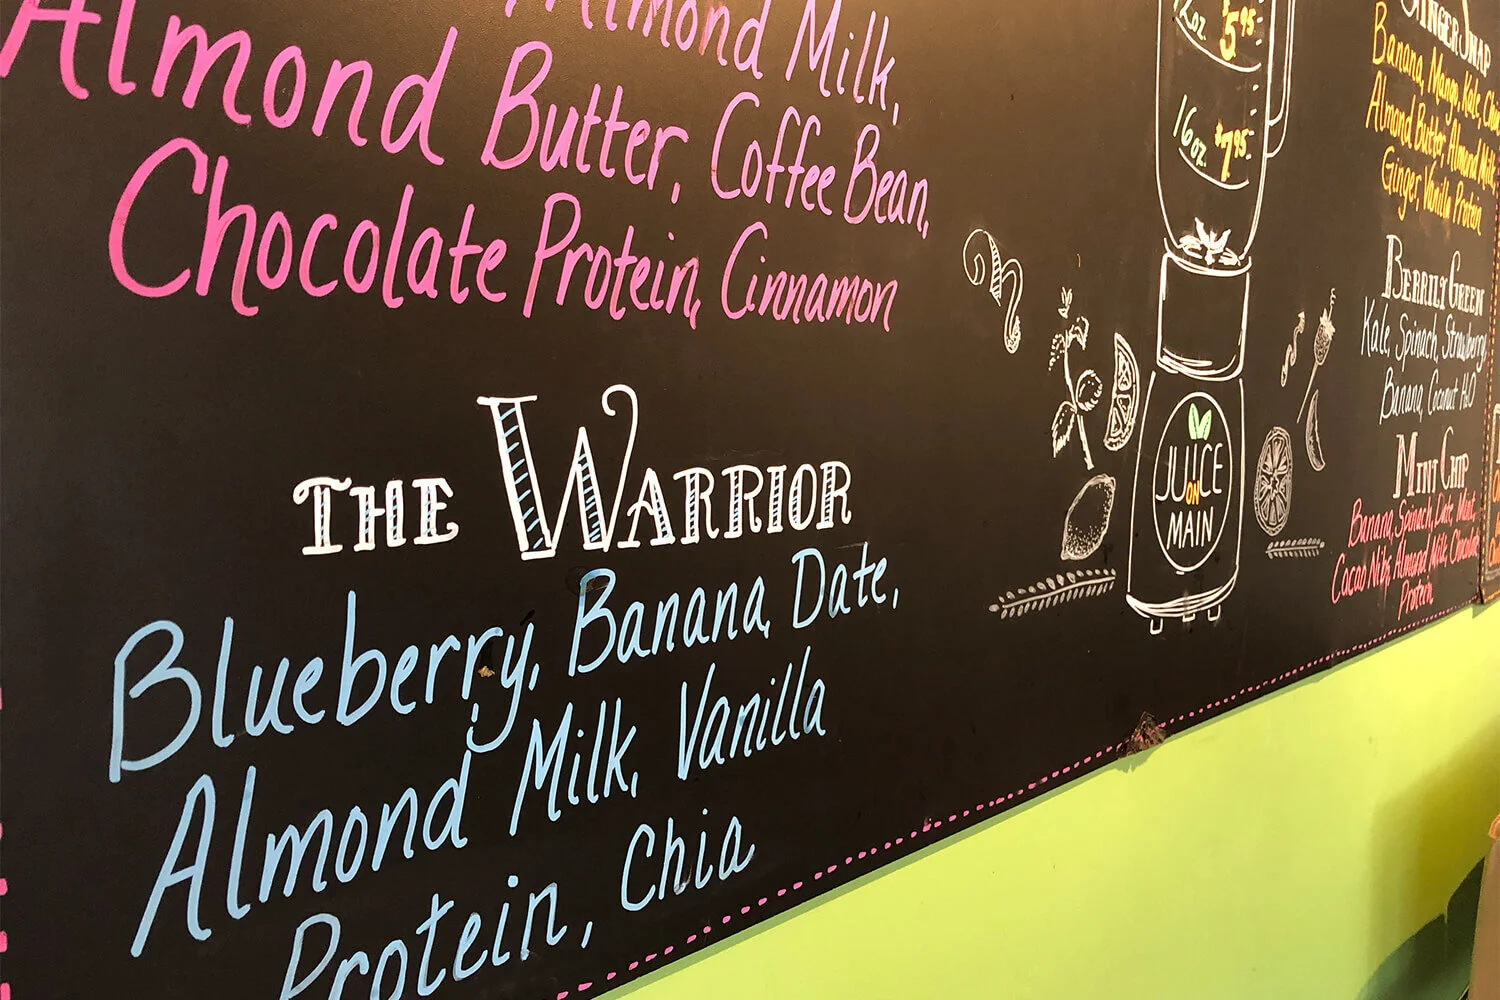 Almond Milk,
Almond Butter, Coffee Bean,
Chocolate Protein, Cinnamon
THE WARRIOR
Blueberry, Banana, Date,
Almond Milk, Vanilla
Protein, Chia
12oz. $5.95
16oz. $7.95
JUICE
ON
MAIN
GINGER SNAP
Banana, Mango, Kale,
Almond Butter, Almond Milk,
Ginger, Vanilla Protein
BERRILY GREEN
Kale, Spinach, Strawberry
Banana, Coconut H2O
MINT CHIP
Banana, Spinach, Date, Mint,
Cacao Nibs, Almond Milk, Chocolate
Protein